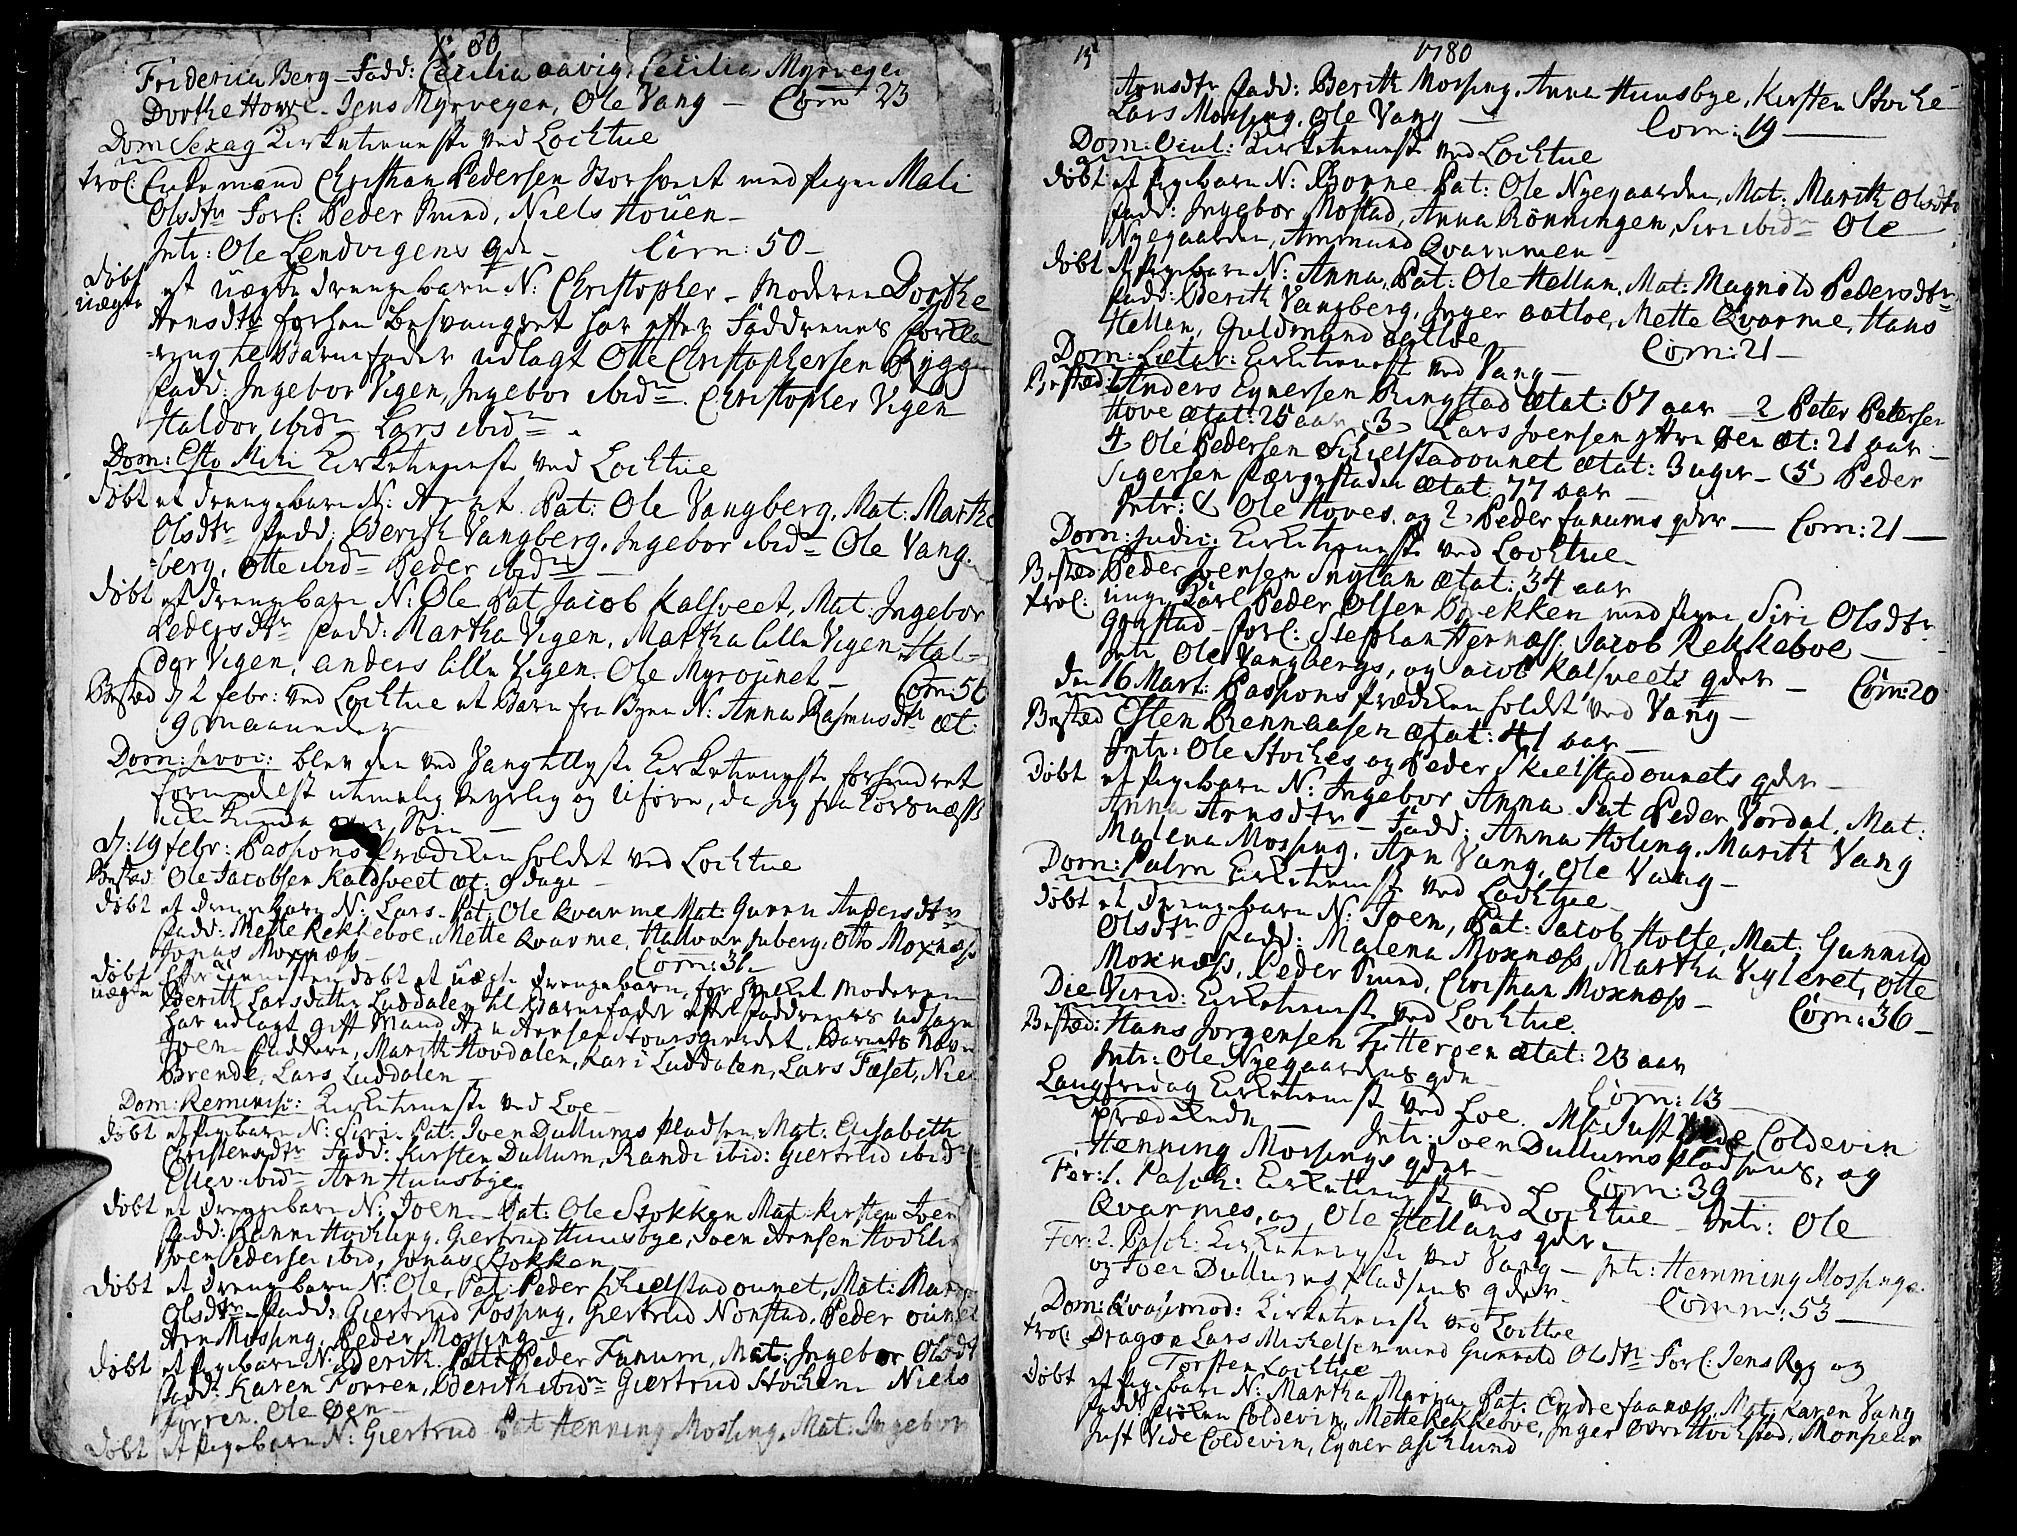 80
Friderica Berg – Fadd: Cecilia aavig, Cecilia Myrvegen
Dorthe Howe. Jens Myrvegen, Ole Vang – Com 23
Dom Sexag Kirketienneste ved Lochtue
trol: Enkemand Christian Pedersen Storhveit med Pigen Mali
Olsdtr Forl: Peder Smed, Niels Hoüen –
Intr: Ole Lendvigens qde – Com: 50 –
døbt et uægte drengebarn N: Christopher – Moderen Dorthe
uægte Arnsdtr
Barnefader udlagt Ole Christophersen Rygg
Fadd: Ingebor Vigen, Ingebor ibidm Christopher Vigen
Haldor ibidm Lars ibidm
Dom: Esto Mihi Kirketienneste ved Lochtue
døbt et drengebarn N: Arnt. Pat: Ole Vangberg, Mat: Marthe
Olsdtr Fadd: Berith Vangberg, Ingebor ibidm Ole Vang-
berg, Otte ibidm Peder ibidm
døbt et drengebarn N: Ole Pat Jacob Kalsveet, Mat. Ingebor
Pedersdtr Fadd: Martha Vigen, Martha lille Vigen, Hal-
dor Vigen, anders lille Vigen. Ole Myroünet – Com: 56
Bested d 2 febr: ved Lochtue et Barn fra Byen N: Anna Rasmusdtr æt:
9 maaneder
Dom: Invoc: blev den ved Vang tillyste Kirketienneste forhindret
formedelst uhmelig Veyrlig og uføre, da jeg fra Torsnæss
ikke kunde over Søen –
d: 19 febr: Passions Prædiken holdet ved Lochtue
Bested Ole Jacobsen Kaldsveet æt: 9 dage –
døbt et drengebarn N: Lars – Pat: Ole Kvarme Mat: Guren Andersdtr
Fadd: Mette Rekkeboe, Mette Kvarme, Hallvor Inberg, Otto Moxnæss
Jonas Moxnæss – Com: 31 –
døbt Efter tiennesten døbt et uægte drengebarn, for hvilket Moderen
uægte Berith Larsdatter Luddalen til Barnefader efter Faddrenes udsagn
har udlagt gift Mand Arn Arnsen Stoursgierdet, Barnets Navn
Joen. Faddere, Marith Hovdalen, Kari Luddalen, Lars Fæset, Niels
Brende, Lars Luddalen
Dom: Reminisc: Kirketienneste ved Loe –
døbt et Pigebarn N: Siri. Pat: Joen Dullums Pladsen, Mat: Elisabeth
Christensdtr Fadd: Kirsten Dullum, Randi ibid: Giertrud ibid
Ellev. ibidm Arn Huusbye.
døbt et drengebarn N: Joen. – Pat: Ole Stokken Mat Kirsten Joens
Fadd: Ranni Hockling, Giertrud Huusbye, Joen Arnsen Hockling
Joen Pedersen ibid, Jonas Stokken
døbt et drengebarn N: Ole, Pat: Peder Skielstadounet, Mat: Mar
Olsdtr – Fadd: Giertrud Fossing, Giertrud Nonstad, Peder ounet
Arn Mossing, Peder Mossing
døbt et Pigebarn N: Berith. Pat: Peder Fanum, Mat: Ingebor Olsdt
Fadd: Karen Forren, Berith ibidm Giertrud Stocken Niels
Forren. Ole Øen –
døbt et Pigebarn N: Giertrud Pat Henning Mossing, Mat: Ingebor
15
1780
Arnsdtr Fadd: Berith Mossing, Anna Huusbye, Kirsten Stocke
Lars Mossing, Ole Vang – Com: 19 –
Dom: Ocul: Kirketienneste ved Lochtue
døbt et Pigebarn N: Pat: Ole Nyegaarden, Mat: Marith Olsdtr
Fadd: Ingebor Mostad, Anna Rönningen, Siri ibidm Ole
Nyegaarden, Ammund Qvarmmen –
døbt et Pigebarn N: Anna, Pat: Ole Hellan, Mat: Magnild Pedersdtr
Fadd: Berith Vangberg, Inger aatloe, Mette Qvarme, Hans
Hellan, Guldmund aatloe – Com: 21 –
Dom: Lætar: Kirketienneste ved Vang –
Bested: 1 Anders Eynersen Ringstad Ætat: 67 aar – 2 Peter Petersen
Hove Ætat: 25 aar 3 Lars Joensen yttre Øen æt: 21 aar –
4 Ole Pedersen Schielstadounet ætat: 3 uger – 5 Peder
Sigersen Færgestaden ætat: 77 aar –
Intr: 1 Ole Hoves, og 2 Peder Fanums qder – Com: 21 –
Dom: Judic: Kirketienneste ved Lochtue
Bested: Peder Joensen Snylan ætat: 34 aar
trol: unge Karl Peder Olsen Brekken med Pigen Siri Olsdtr
Forl: Stephan Hernæss, Jacob Rekkeboe –
Intr. Ole Vangbergs, og Jacob Kalsveets qder – Com: 20
den 16 Mart: Passions Prædiken holdet ved Vang –
Bested Esten Bennaasen ætat: 41 aar –
Intr: Ole Stockes og Peder Skielstadounets qder –
døbt et Pigebarn N: Ingebor Anna Pat Peder Vordal, Mat:
Anna Arnsdtr – Fadd: Anna Holing, Marith Vang
Malena Mossing, Arn Vang, Ole Vang –
Dom: Palm Kirketienneste ved Lochtue
døbt et drengebarn N: Joen, Pat: Jacob Holte, Mat: Gunnild
Olsdtr Fadd: Malena Moxnæss, Martha Vigleret, Otte
Moxnæss, Peder Smed, Christian Moxnæss –
Die Virid: Kirketienneste ved Lochtue. Com: 36 –
Bested: Hans Jorgensen Fætteroen ætat: 23 aar
Intr: Ole Nyegaardens qde – Com: 13
Langfredag Kirketienneste ved Loe. Msr Just Vide Coldevin
prædikede – Intr: Joen Dullums Pladsens, og
Henning Mossings qder – Com: 39 –
Fer: 1. Pasch: Kirketienneste ved Lochtue – Intr: Ole
Qvarmes, og Ole Hellans qder.
Fer: 2. Pasch: Kirketienneste ved Vang – Intr: Hemming Mossings
og Joen Dullums Pladsens qder. Comm: 53 –
Dom: Qvasimod: Kirketienneste ved Lochtue
trol: Dragon Lars Michelsen med Gunnild Olsdtr Forl: Jens Ryg og
Torsten Lochtue
døbt et Pigebarn N: Martha Maria, Pat: Endre Faanæss, Mat: Karen Vang
Fadd: Frøken Coldevin, Mette Rekkeboe, Inger Hockstad, Monsieur
Just Vide Coldevin, Eyner Asklund